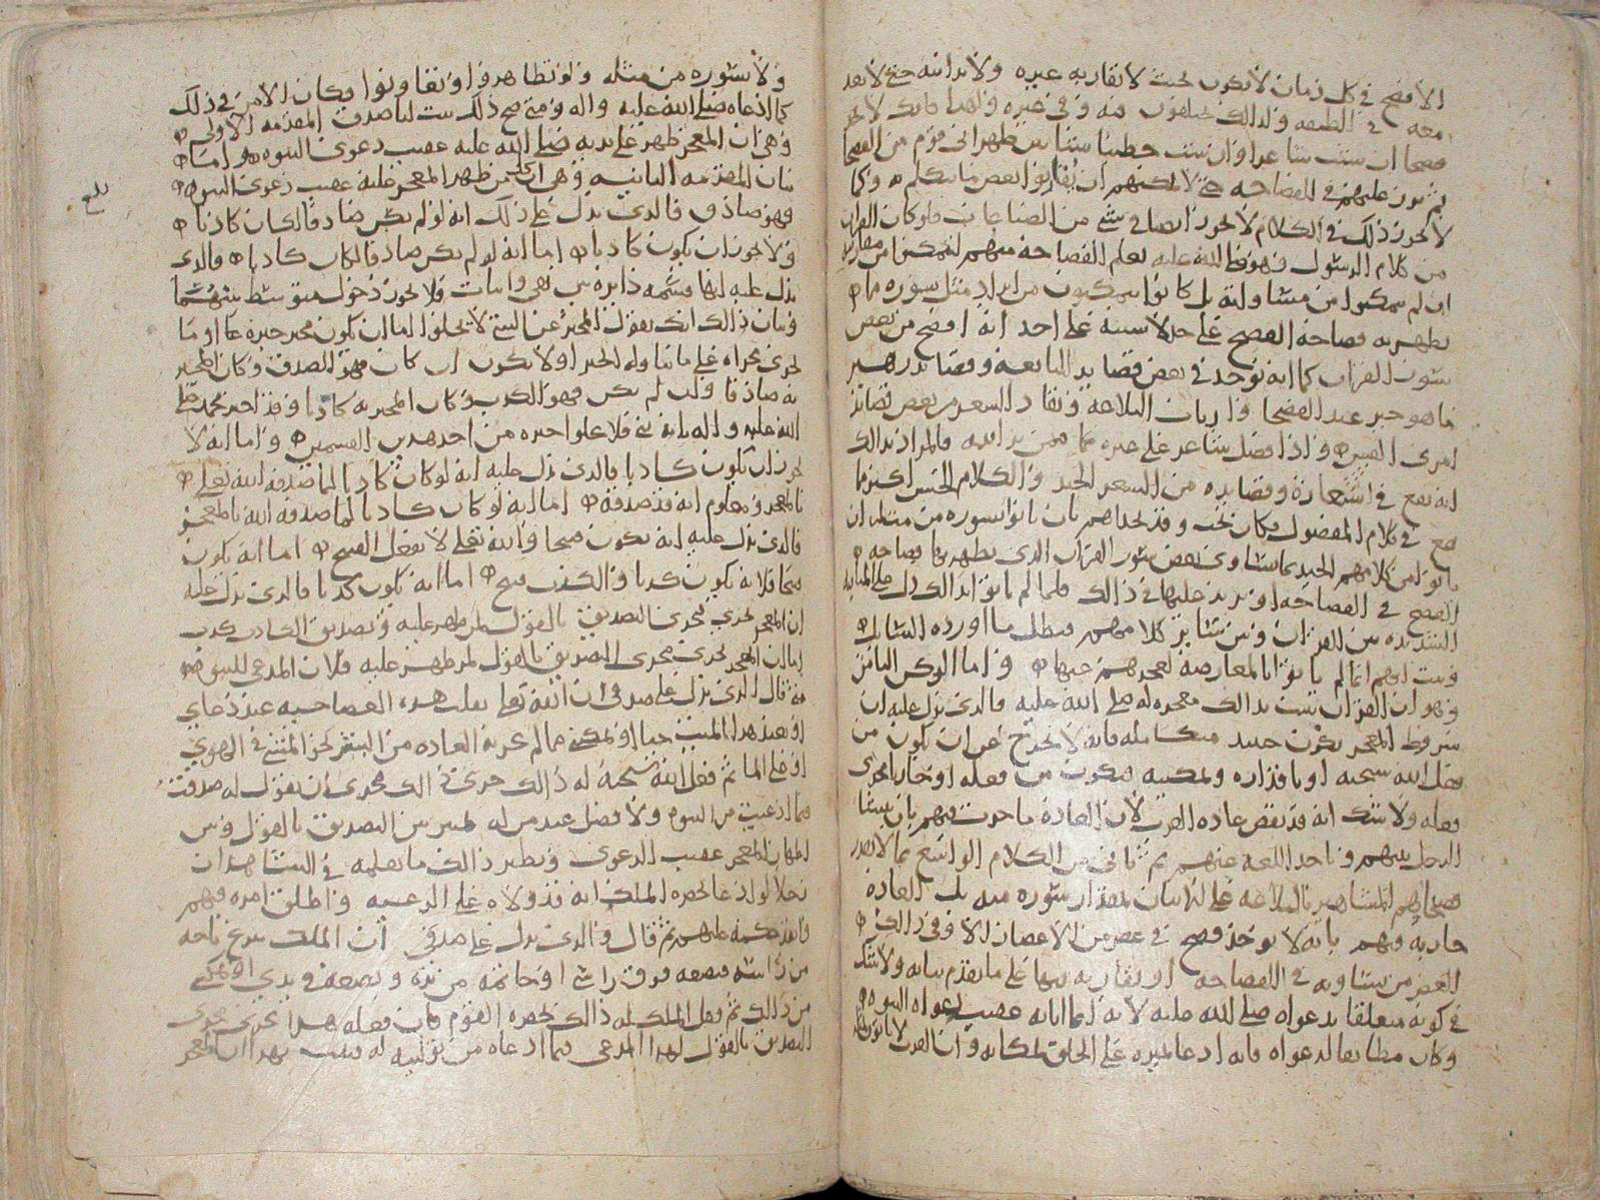 الأفصح في كل زمان لا يكون بحيث لا يقاربه غيره ولا يدانيه حتى لا يعد
معه في الطبقة ولذلك يختلفون فيه وفي غيره ولهذا فانك لا تجد
فصحا ان بينت شاعرا وان بينت خطيبا ظهر الى قوم من الفصحا
يبرزون عليهم في الفصاحة حتى لا يمكنهم ان يقاربوا بعض ما يتكلم به وكما
لا يجوز ذلك في الكلام لا يجوز ايضا في شي من الصناعات فلو كان القران
من كلام الرسول فهو صلى الله عليه تعلم الفصاحة منهم لتمكنوا من مقاربته
ان لم يتمكنوا من مساواته بل كانوا يتمكنون من ايراد مثل سورة مما
يظهر به فصاحة الفصيح على حد لا سيما على احد انه افصح من بعض
سور القران كما انه يوجد في بعض قصايد النابغة وقصايد زهير
ما هو خير عند الفصحا وارباب البلاغة ونقاد الشعر من بعض قصايد
امرئ القيس واذا فضل شاعر على غيره فالمراد بذلك
انه يقع في اشعاره وقصايده من الشعر الجيد والكلام الحسن اكثر مما
يقع في كلام المفضول فكان يجب وقد تحداهم بان ياتوا بسورة من مثله ان
ياتوا من كلامهم الجيد بما يساوي بعض سور القران الذي يظهر بها فصاحة
الفصيح في الفصاحة او يزيد عليها في ذلك فلما لم ياتوا بذلك دل على المباينة
الشديدة بين القران وبين سائر كلامهم فبطل ما اورده السائل
وثبت انهم انما لم ياتوا بالمعارضة لعجزهم عنها واما الركن الثاني
وهو ان القران ثبت بذلك معجزة له صلى الله عليه فالذي يدل عليه ان
شروط المعجز تقررت حينئذ متكاملة فانه لا يخرج عن ان يكون من
فعل الله سبحانه او باقداره وتمكينه فيكون من فعله او جاريا مجرى
فعله ولا شك انه قد نقض عادة العرب لان العادة ما جرت فيهم بان ينشا
الرجل بينهم وياخذ اللغة عنهم ثم ياتي من الكلام الواسع بما لا يقدر
فصحاؤهم المشاهير بالبلاغة على اتيان بمقدار سورة منه بل العادة
جارية فيهم بانه لا يوجد فصيح في عصر من الاعصار الا وفي ذلك
العصر من يساويه في الفصاحة او يقاربه فيها على ما تقدم بيانه ولا شك
في كونه متعلقا بدعواه صلى الله عليه لانه انما ابانه عقيب دعواه النبوة
وكان مطابقا لدعواه فانه ادعا لميزه على الخلق لمكانه وان العرب لا ياتون بمثله
ولا بسورة من مثله ولو تظاهروا وتعاونوا فكان الامر في ذلك
كما ادعاه صلى الله عليه واله ومتى صح ذلك ثبت لنا صدق المقدمة الاولى
وهي ان المعجز ظهر على يديه صلى الله عليه عقيب دعوى النبوة واما
بيان المقدمة الثانية وهي ان كل من ظهر المعجز عليه عقيب دعوى النبوة
بلغ
فهو صادق فالذي يدل على ذلك انه لو لم يكن صادقا لكان كاذبا
ولا يجوز ان يكون كاذبا اما انه لو لم يكن صادقا لكان كاذبا فالذي
يدل عليه انها قسمة دايرة بين نفي واثبات فلا يجوز دخول متوسط بينهما
وبيان ذلك انك تقول المخبر عن الشي لا يخلوا اما ان يكون مخبر خبره او ما
يجري مجراه على ما تناوله الخبر او لا يكون ان كان فهو الصدق وكان المخبر
به صادقا وان لم يكن فهو الكذب وكان المخبر به كاذبا وقد اخبر محمد صلى
الله عليه واله بانه نبي فلا يخلوا خبره من احد هذين القسمين واما انه لا
يجوز ان يكون كاذبا فالذي يدل عليه انه لو كان كاذبا لما صدقه الله تعالى
بالمعجز ومعلوم انه قد صدقه اما انه لو كان كاذبا لما صدقه الله بالمعجز
فالذي يدل عليه انه يكون قبيحا والله تعالى لا يفعل القبيح اما انه يكون
قبيحا فلانه يكون كذبا والكذب قبيح اما انه يكون كذبا فالذي يدل عليه
ان المعجز يجري مجرى التصديق بالقول لمن ظهر عليه وتصديق الكاذب كذب
اما ان المعجز يجري مجرى التصديق بالقول لمن ظهر عليه فلان المدعي للنبوة
متى قال الذي يدل على صدقي ان الله تعالى يقلب هذه العصا حية عند دعاي
او يعيد هذا الميت حيا او نحوه مما لم تجر به العادة من البشر نحو المشي في الهوي
او على الما ثم فعل الله سبحانه له ذلك جرى ذلك مجرى ان يقول له صدقت
فيما ادعيت من النبوة ولا فصل عند من له تمييز بين التصديق بالقول وبين
اظهار المعجز عقيب الدعوى ونظير ذلك ما نعلمه في الشاهد ان
رجلا لو ادعا بحضرة الملك انه قد ولاه على الرعية واطلق امره فيهم
وانفذ حكمه عليهم ثم قال والذي يدل على صدقي ان الملك ينزع تاجه
من راسه فيضعه فوق راسي او خاتمه من يده ويضعه في يدي او نحو
من ذلك ثم فعل الملك له ذلك بحضرة القوم فان فعله هذا يجري مجرى
التصديق بالقول لهذا المدعي فيما ادعاه من توليته له فثبت بهذا ان المعجز